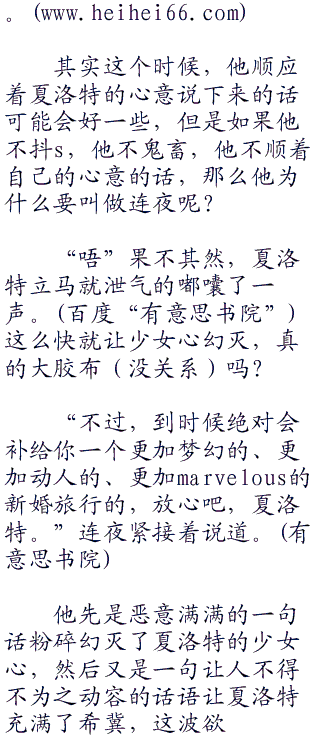 。(www.heihei66.com)
其实这个时候，他顺应
着夏洛特的心意说下来的话
可能会好一些，但是如果他
不抖s，他不鬼畜，他不顺着
自己的心意的话，那么他为
什么要叫做连夜呢？
“唔”果不其然，夏洛
特立马就泄气的嘟囔了一
声。(百度“有意思书院”)
这么快就让少女心幻灭，真
的大胶布（没关系）吗？
“不过，到时候绝对会
补给你一个更加梦幻的、更
加动人的、更加marvelous的
新婚旅行的，放心吧，夏洛
特。”连夜紧接着说道。(有
意思书院)
他先是恶意满满的一句
话粉碎幻灭了夏洛特的少女
心，然后又是一句让人不得
不为之动容的话语让夏洛特
充满了希冀，这波欲